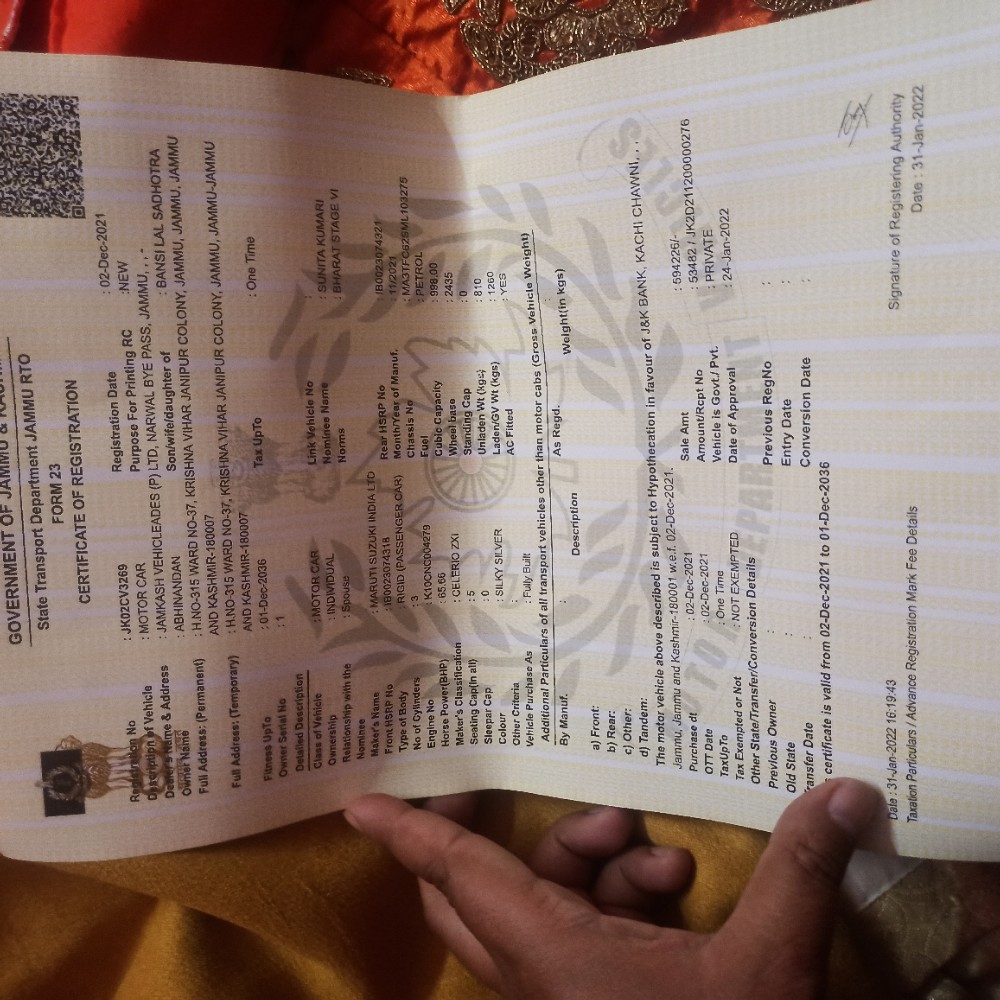 GOVERNMENT OF JAMMU & KASHMIR
State Transport Department JAMMU RTO
FORM 23
CERTIFICATE OF REGISTRATION
Registration No : JK02CV3269 Registration Date : 02-Dec-2021
Description of Vehicle : MOTOR CAR Purpose For Printing RC : NEW
Dealer's Name & Address : JAMKASH VEHICLEADES (P) LTD, NARWAL BYE PASS, JAMMU, , , -
Owner Name : ABHINANDAN Son/wife/daughter of : BANSI LAL SADHOTRA
Full Address: (Permanent) : H.NO-315 WARD NO-37, KRISHNA VIHAR JANIPUR COLONY, JAMMU, JAMMU, JAMMU
AND KASHMIR-180007
Full Address: (Temporary) : H.NO-315 WARD NO-37, KRISHNA VIHAR JANIPUR COLONY, JAMMU, JAMMU-JAMMU
AND KASHMIR-180007
Fitness UpTo : 01-Dec-2036 Tax UpTo : One Time
Owner Serial No : 1
Detailed Description
Class of Vehicle : MOTOR CAR Link Vehicle No
Ownership : INDIVIDUAL Nominee Name : SUNITA KUMARI
Relationship with the : Spouse Norms : BHARAT STAGE VI
Nominee
Maker's Name : MARUTI SUZUKI INDIA LTD
Front HSRP No : IB0023074318 Rear HSRP No : IB0023074321
Type of Body : RIGID (PASSENGER CAR) Month/Year of Manuf. : 11/2021
No of Cylinders : 3 Chassis No : MA3TFC62SML103275
Engine No : K10CNC004279 Fuel : PETROL
Horse Power(BHP) : 65.66 Cubic Capacity : 998.00
Maker's Classification : CELERIO ZXI Wheel base : 2435
Seating Cap(In all) : 5 Standing Cap : 0
Sleepar Cap : 0 Unladen Wt (kgs) : 810
Colour : SILKY SILVER Laden/GV Wt (kgs) : 1260
Other Criteria AC Fitted : YES
Vehicle Purchase As : Fully Built
Additional Particulars of all transport vehicles other than motor cabs (Gross Vehicle Weight)
By Manuf. As Regd.
Description Weight(in kgs)
a) Front:
b) Rear:
c) Other:
d) Tandem:
The motor vehicle above described is subject to Hypothecation in favour of J&K BANK, KACHI CHAWNI, , ,
Jammu, Jammu and Kashmir-180001 w.e.f. 02-Dec-2021.
Purchase dt : 02-Dec-2021 Sale Amt : 594226/-
OTT Date : 02-Dec-2021 Amount/Rcp No : 53482 / JK2D211200000276
TaxUpTo : One Time Vehicle is Govt./ Pvt. : PRIVATE
Tax Exempted or Not : NOT EXEMPTED Date of Approval : 24-Jan-2022
Other State/Transfer/Conversion Details
Previous Owner : Previous RegNo :
Old State : Entry Date :
Transfer Date : Conversion Date :
certificate is valid from 02-Dec-2021 to 01-Dec-2036
Date : 31-Jan-2022 16:19:43 Signature of Registering Authority
Taxation Particulars / Advance Registration Mark Fee Details Date : 31-Jan-2022